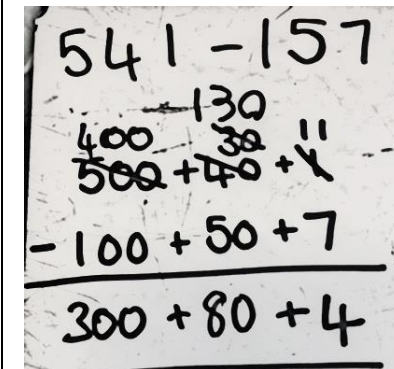 541 - 157
130
400 30 11
500 + 40 + 1
- 100 + 50 + 7
300 + 80 + 4